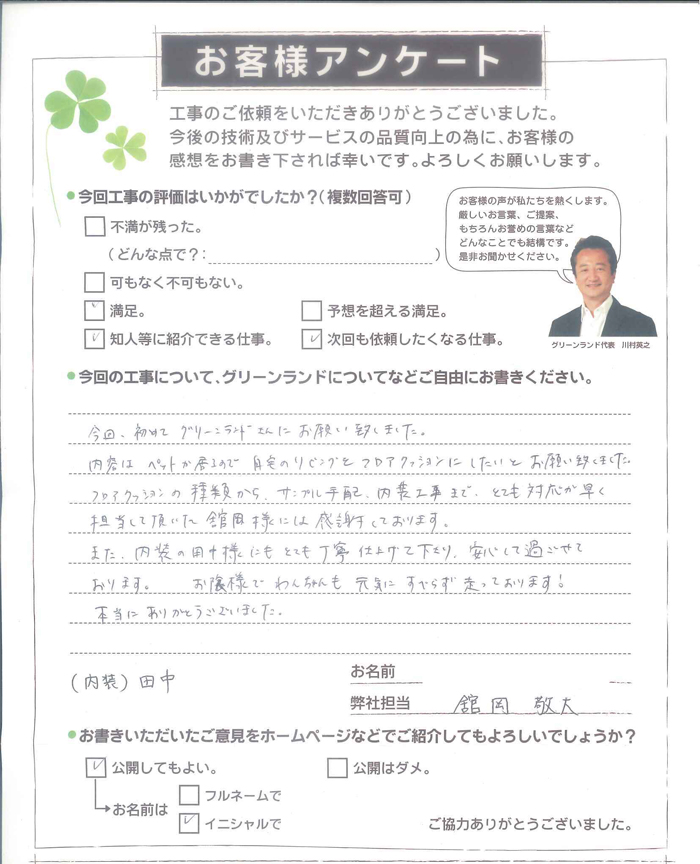 お客様アンケート
工事のご依頼をいただきありがとうございました。
今後の技術及びサービスの品質向上の為に、お客様の
感想をお書き下されば幸いです。よろしくお願いします。
今回工事の評価はいかがでしたか?(複数回答可)
不満が残った。
(どんな点で?: )
可もなく不可もない。
満足。
予想を超える満足。
知人等に紹介できる仕事。
次回も依頼したくなる仕事。
お客様の声が私たちを熱くします。
厳しいお言葉、ご提案、
もちろんお誉めの言葉など
どんなことでも結構です。
是非お聞かせください。
グリーンランド代表 川村英之
今回の工事について、グリーンランドについてなどご自由にお書きください。
今回、初めて グリーンランドさんに お願い致しました。
内容は ペットが居るので 自宅のリビングを フロアクッションに したいと お願い致しました。
フロアクッションの 種類から、サンプル手配、内装工事まで、とても 対応が早く
担当して頂いた 舘岡様には 感謝しております。
また、内装の田中様にも とても 丁寧 仕上げて下さり、安心して過ごせて
おります。 お陰様で わんちゃんも 元気に すべらず 走っております!
本当に ありがとうございました。
(内装) 田中
お名前
弊社担当 舘岡 敬太
お書きいただいたご意見をホームページなどでご紹介してもよろしいでしょうか?
公開してもよい。
公開はダメ。
お名前は
フルネームで
イニシャルで
ご協力ありがとうございました。